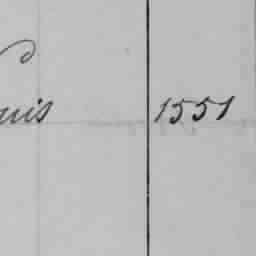 uis 1551